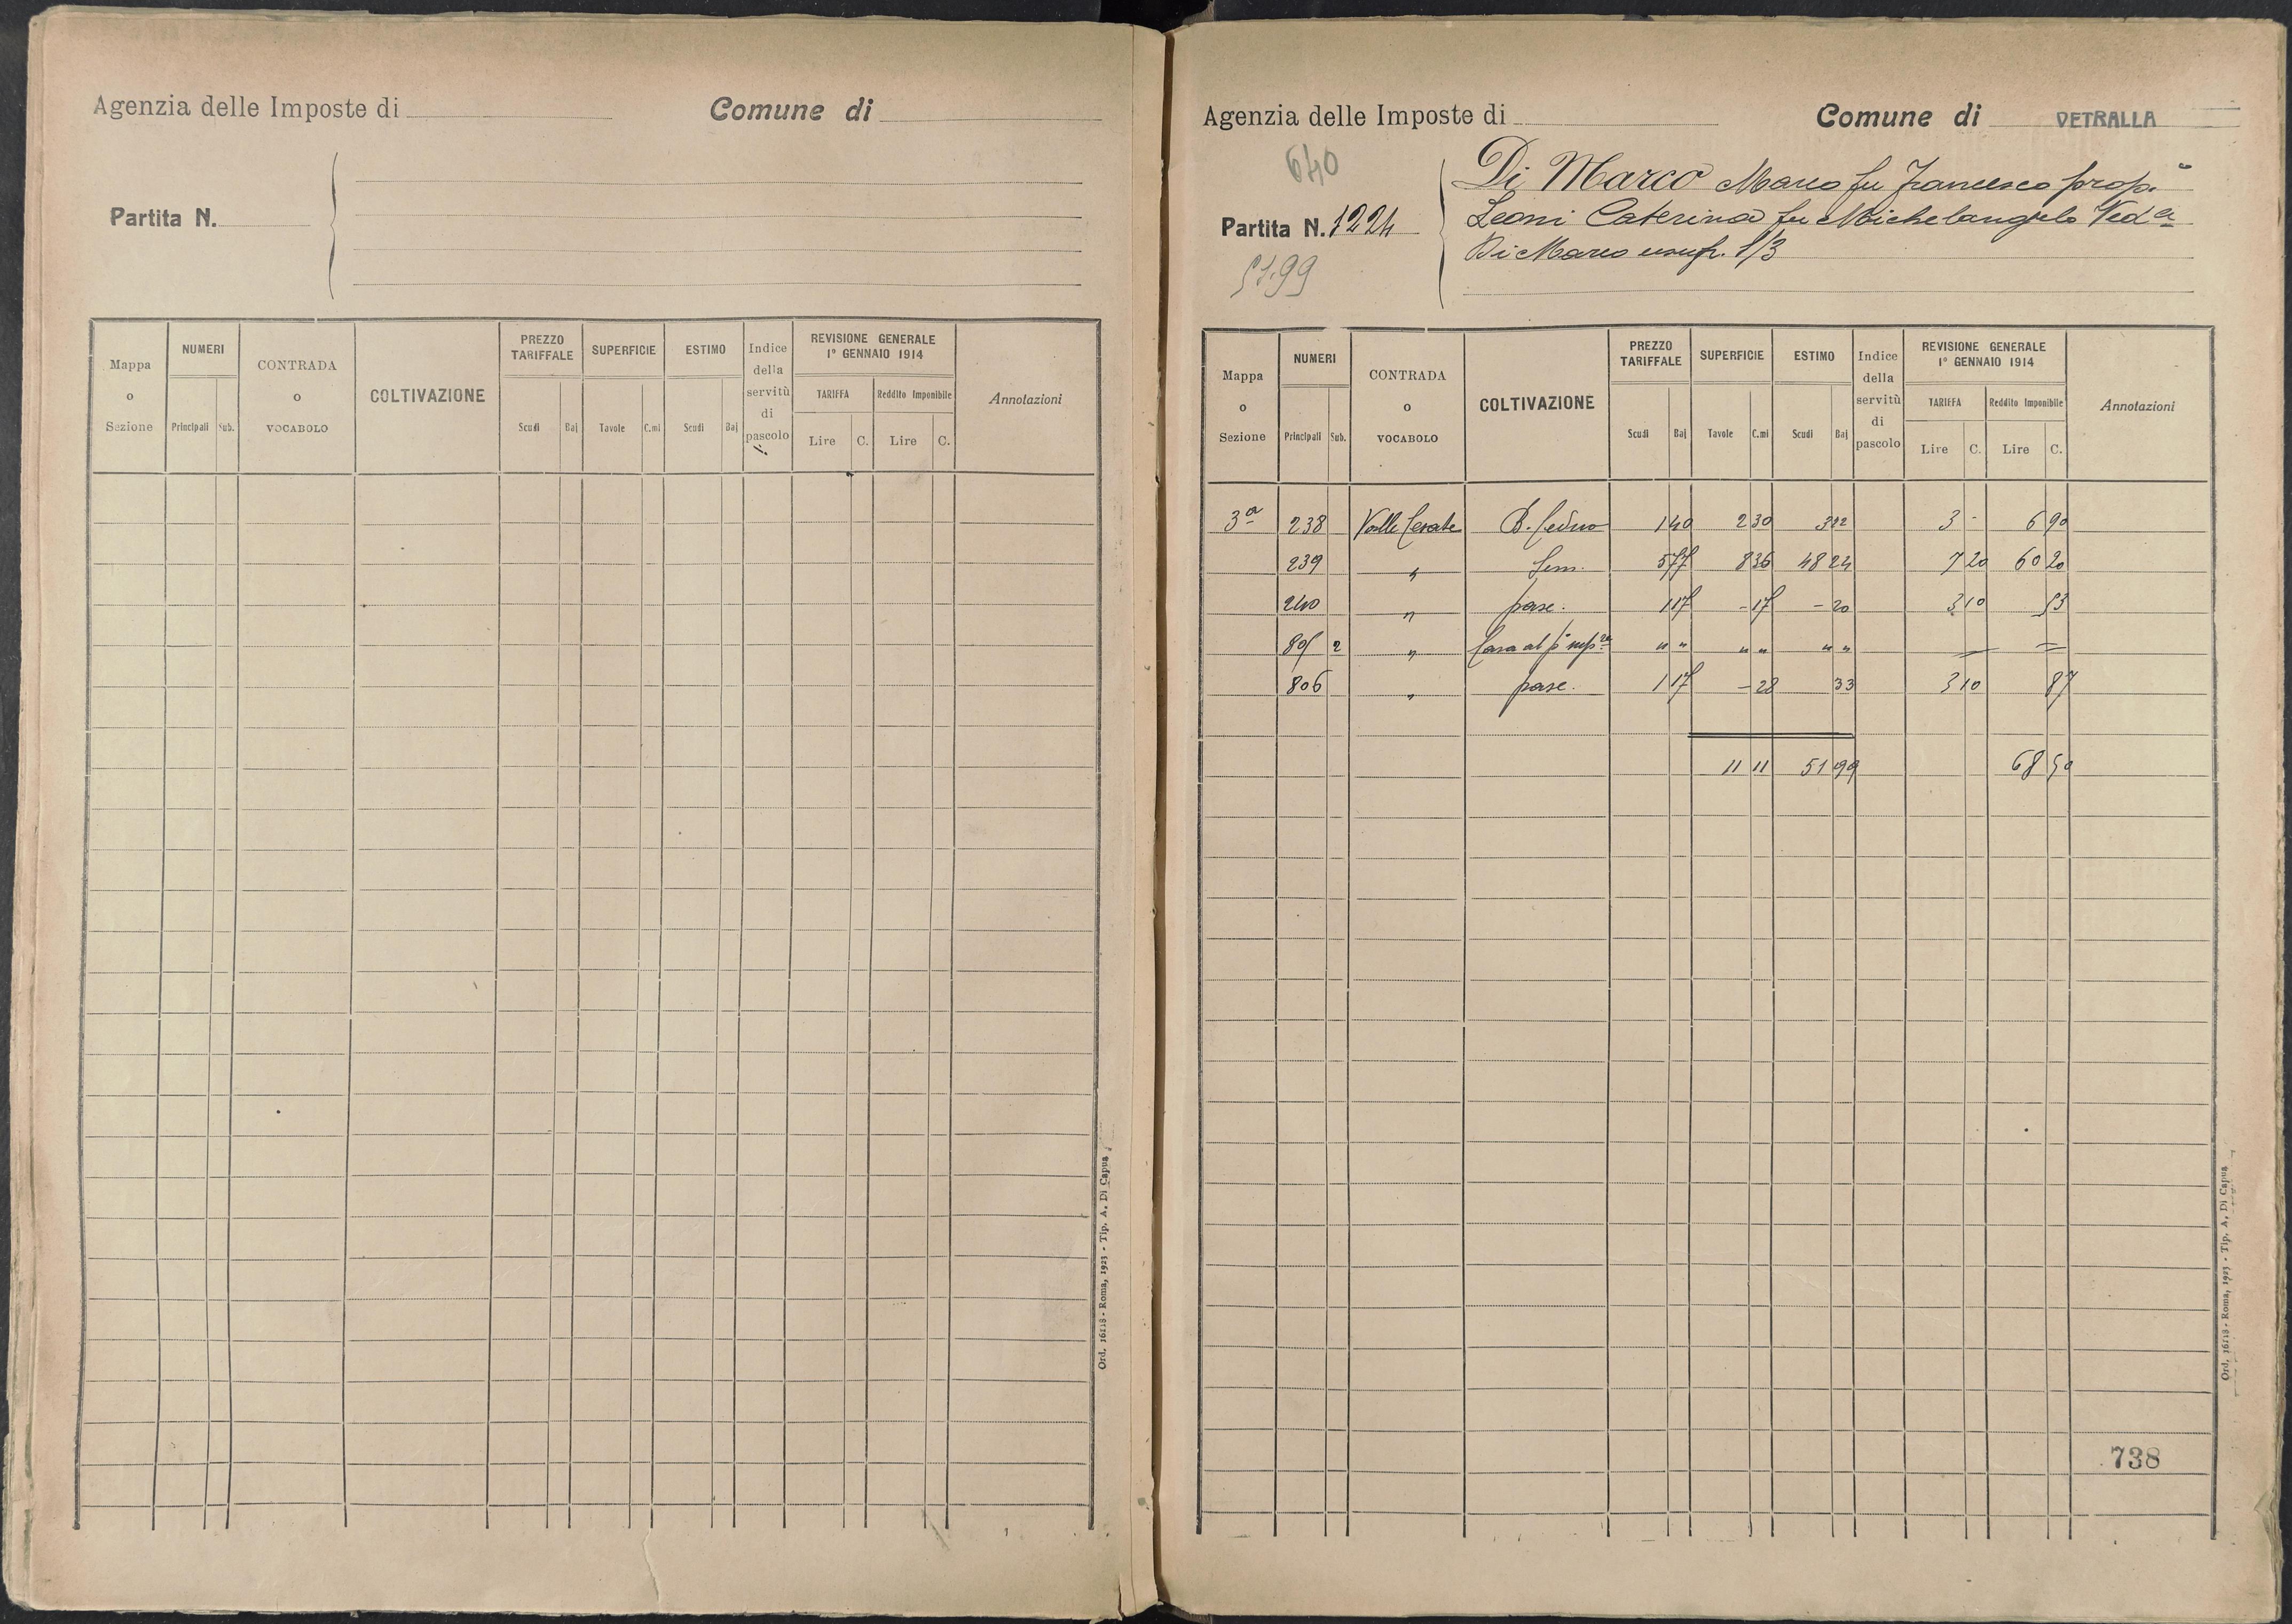 Agenzia delle Imposte di Comune di
Partita N.
Mappa o Sezione NUMERI Principali Sub. CONTRADA o VOCABOLO COLTIVAZIONE PREZZO TARIFFALE Scudi Baj SUPERFICIE Tavole C.mi ESTIMO Scudi Baj Indice della servitù di pascolo REVISIONE GENERALE 1° GENNAIO 1914 TARIFFA Lire C. Reddito Imponibile Lire C. Annotazioni
Ord. 16118 - Roma, 1923 - Tip. A. Di Capua
Agenzia delle Imposte di Comune di VETRALLA
640
Di Marco Marco fu Francesco prop.
Partita N. 1224 Leoni Caterina fu Michelangelo Ved.a
Di Marco usufr. 1/3
51.99
Mappa o Sezione NUMERI Principali Sub. CONTRADA o VOCABOLO COLTIVAZIONE PREZZO TARIFFALE Scudi Baj SUPERFICIE Tavole C.mi ESTIMO Scudi Baj Indice della servitù di pascolo REVISIONE GENERALE 1° GENNAIO 1914 TARIFFA Lire C. Reddito Imponibile Lire C. Annotazioni
3a 238 Valle B. Ceduo 1 40 2 30 3 22 3 - 6 90
239 " Sem. 5 77 8 36 48 24 7 20 60 20
240 " pasc. 1 17 - 17 - 20 3 10 53
805 2 " Casa al " " " " " " = =
806 " pasc. 1 17 - 28 33 3 10 87
11 11 51 99 68 50
738
Ord. 16118 - Roma, 1923 - Tip. A. Di Capua